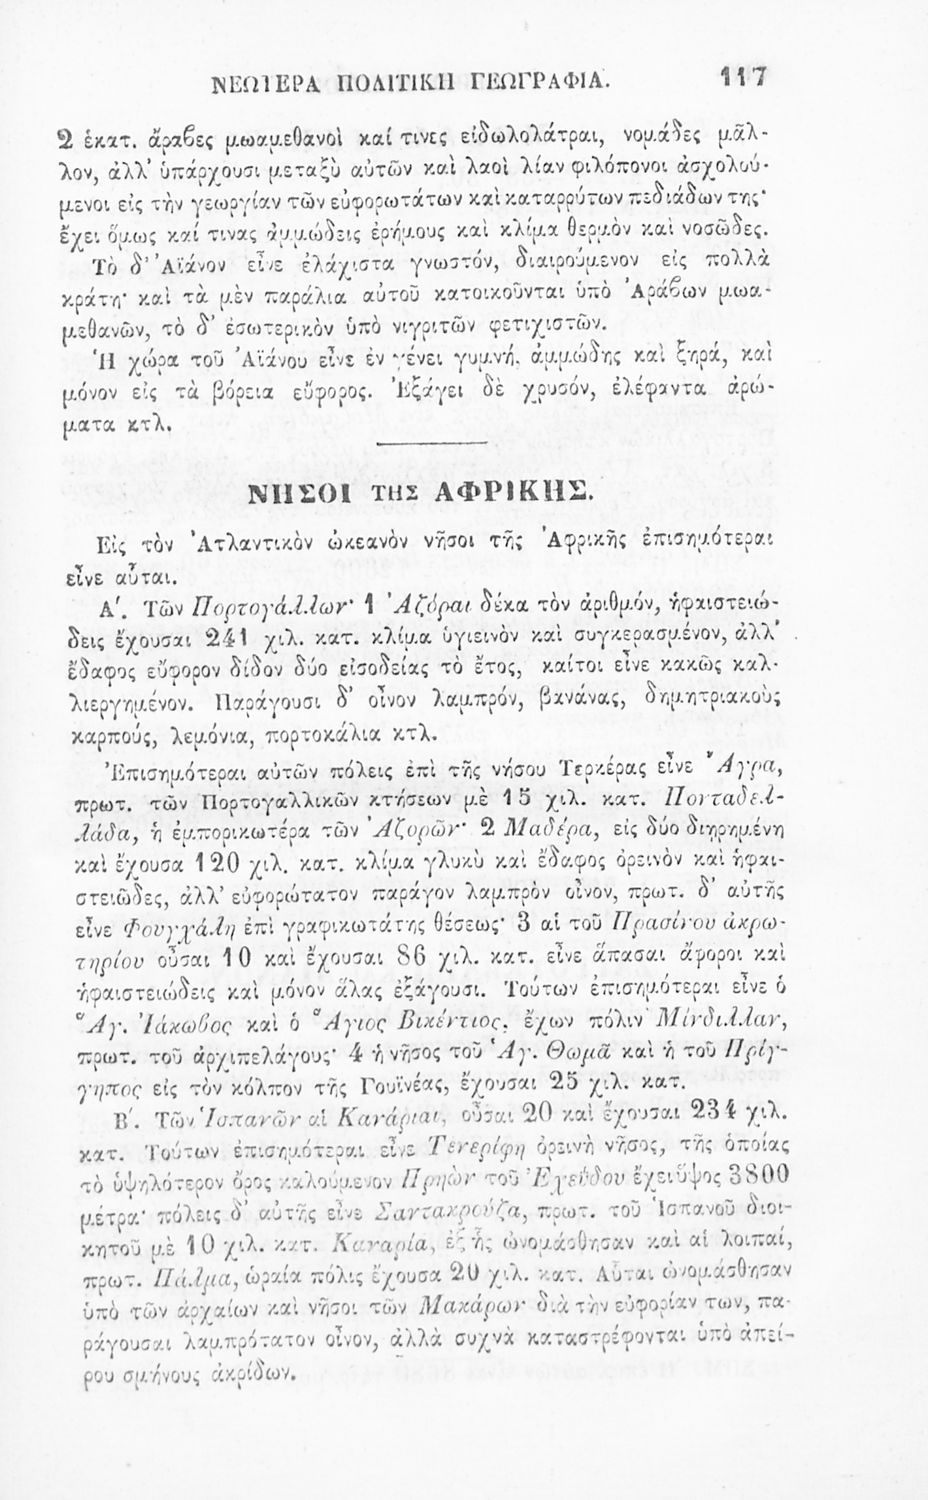 ΝΕΩΤΕΡΑ ΠΟΛΙΤΙΚΗ ΓΕΩΓΡΑΦΙΑ. 117
2 ἑκατ. ἄραβες μωαμεθανοὶ καί τινες εἰδωλολάτραι, νομάδες μᾶλ-
λον, ἀλλ' ὑπάρχουσι μεταξὺ αὐτῶν καὶ λαοὶ λίαν φιλόπονοι ἀσχολού-
μενοι εἰς τὴν γεωργίαν τῶν εὐφορωτάτων καὶ καταρρύτων πεδιάδων της·
ἔχει ὅμως καί τινας ἀμμώδεις ἐρήμους καὶ κλίμα θερμὸν καὶ νοσῶδες.
Τὸ δ' Ἀϊάνον εἶνε ἐλάχιστα γνωστόν, διαιρούμενον εἰς πολλὰ
κράτη· καὶ τὰ μὲν παράλια αὐτοῦ κατοικοῦνται ὑπὸ Ἀράβων μωα-
μεθανῶν, τὸ δ' ἐσωτερικὸν ὑπὸ νιγριτῶν φετιχιστῶν.
Ἡ χώρα τοῦ Ἀϊάνου εἶνε ἐν γένει γυμνή, ἀμμώδης καὶ ξηρά, καὶ
μόνον εἰς τὰ βόρεια εὔφορος. Ἐξάγει δὲ χρυσόν, ἐλέφαντα ἀρώ-
ματα κτλ.
ΝΗΣΟΙ ΤΗΣ ΑΦΡΙΚΗΣ.
Εἰς τὸν Ἀτλαντικὸν ὠκεανὸν νῆσοι τῆς Ἀφρικῆς ἐπισημότεραι
εἶνε αὗται.
Α΄. Τῶν Πορτογάλλων· 1 Ἀζόραι δέκα τὸν ἀριθμόν, ἡφαιστειώ-
δεις ἔχουσαι 241 χιλ. κατ. κλίμα ὑγιεινὸν καὶ συγκερασμένον, ἀλλ'
ἔδαφος εὔφορον δίδον δύο εἰσοδείας τὸ ἔτος, καίτοι εἶνε κακῶς καλ-
λιεργημένον. Παράγουσι δ' οἶνον λαμπρόν, βανάνας, δημητριακοὺς
καρπούς, λεμόνια, πορτοκάλια κτλ.
Ἐπισημότεραι αὐτῶν πόλεις ἐπὶ τῆς νήσου Τερκέρας εἶνε Ἄγρα,
πρωτ. τῶν Πορτογαλλικῶν κτήσεων μὲ 15 χιλ. κατ. Πονταδελ-
λάδα, ἡ ἐμπορικωτέρα τῶν Ἀζορῶν· 2 Μαδέρα, εἰς δύο διῃρημένη
καὶ ἔχουσα 120 χιλ. κατ. κλίμα γλυκὺ καὶ ἔδαφος ὀρεινὸν καὶ ἡφαι-
στειῶδες, ἀλλ' εὐφορώτατον παράγον λαμπρὸν οἶνον, πρωτ. δ' αὐτῆς
εἶνε Φουγχάλη ἐπὶ γραφικωτάτης θέσεως· 3 αἱ τοῦ Πρασίνου ἀκρω-
τηρίου οὖσαι 10 καὶ ἔχουσαι 86 χιλ. κατ. εἶνε ἅπασαι ἄφοροι καὶ
ἡφαιστειώδεις καὶ μόνον ἅλας ἐξάγουσι. Τούτων ἐπισημότεραι εἶνε ὁ
Ἅγ. Ἰάκωβος καὶ ὁ Ἅγιος Βικέντιος, ἔχων πόλιν Μίνδιλλαν,
πρωτ. τοῦ ἀρχιπελάγους· 4 ἡ νῆσος τοῦ Ἁγ. Θωμᾶ καὶ ἡ τοῦ Πρίγ-
γηπος εἰς τὸν κόλπον τῆς Γουϊνέας, ἔχουσαι 25 χιλ. κατ.
Β΄. Τῶν Ἱσπανῶν αἱ Κανάριαι, οὖσαι 20 καὶ ἔχουσαι 234 χιλ.
κατ. Τούτων ἐπισημότεραι εἶνε Τενερίφη ὀρεινὴ νῆσος, τῆς ὁποίας
τὸ ὑψηλότερον ὄρος καλούμενον Πρηὼν τοῦ Ἐχεύδου ἔχει ὕψος 3800
μέτρα· πόλεις δ' αὐτῆς εἶνε Σαντακρούζα, πρωτ. τοῦ Ἱσπανοῦ διοι-
κητοῦ μὲ 10 χιλ. κατ. Καναρία, ἐξ ἧς ὠνομάσθησαν καὶ αἱ λοιπαί,
πρωτ. Πάλμα, ὡραία πόλις ἔχουσα 20 χιλ. κατ. Αὗται ὠνομάσθησαν
ὑπὸ τῶν ἀρχαίων καὶ νῆσοι τῶν Μακάρων διὰ τὴν εὐφορίαν των, πα-
ράγουσαι λαμπρότατον οἶνον, ἀλλὰ συχνὰ καταστρέφονται ὑπὸ ἀπεί-
ρου σμήνους ἀκρίδων.